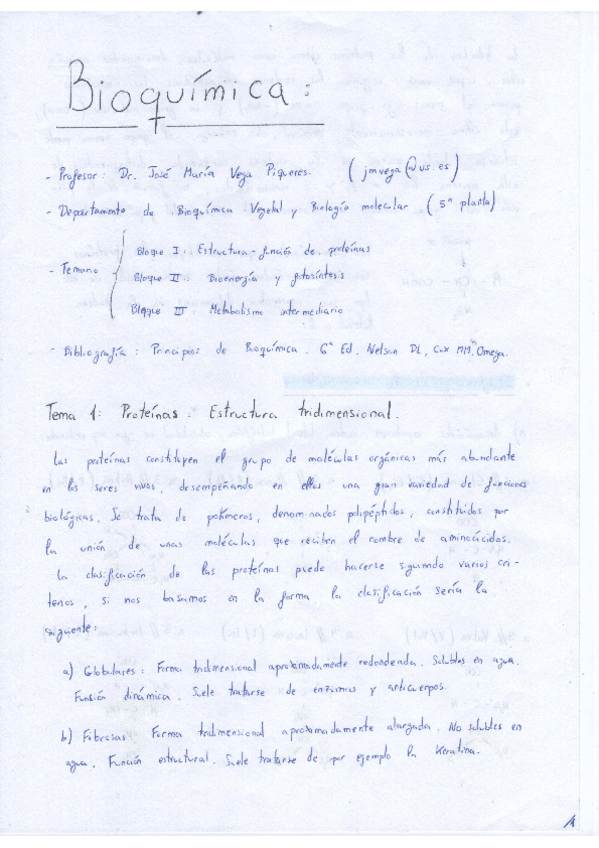 Bioquímica:
- Profesor: Dr. José María Vega Piqueres. (jmvega@us.es)
- Departamento de Bioquímica Vegetal y Biología molecular (5ª planta)
- Temario
Bloque I: Estructura-función de proteínas
Bloque II: Bioenergía y fotosíntesis
Bloque III: Metabolismo intermediario
- Bibliografía: Principios de Bioquímica. 6ª Ed. Nelson DL, Cox MM, Omega.
Tema 1: Proteínas. Estructura tridimensional.
Las proteínas constituyen el grupo de moléculas orgánicas más abundante
en los seres vivos, desempeñando en ellos una gran variedad de funciones
biológicas. Se trata de polímeros, denominados polipéptidos, constituidos por
la unión de unas moléculas que reciben el nombre de aminoácidos.
La clasificación de las proteínas puede hacerse siguiendo varios cri-
terios, si nos basamos en la forma la clasificación sería la
siguiente:
a) Globulares: Forma tridimensional aproximadamente redondeada. Solubles en agua.
Función dinámica. Suele tratarse de enzimas y anticuerpos.
b) Fibrosas: Forma tridimensional aproximadamente alargada. No solubles en
agua. Función estructural. Suele tratarse de por ejemplo la Keratina.
/1